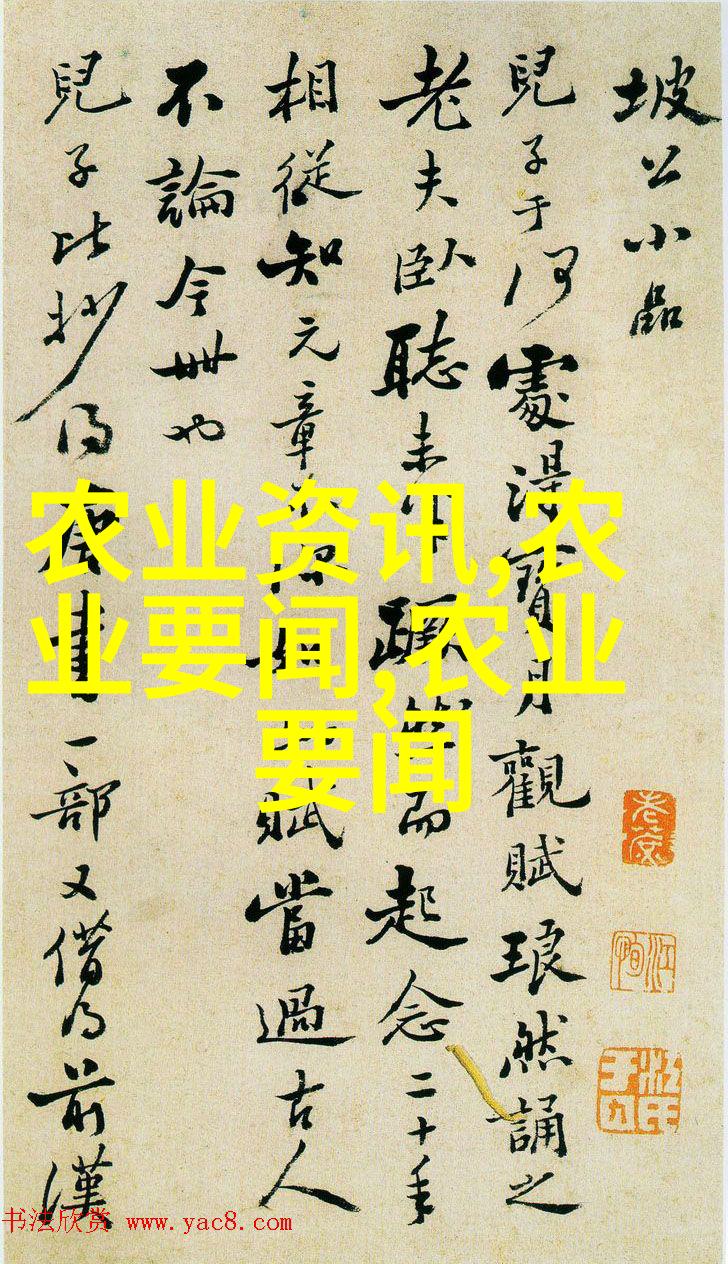 坡公小品
兒子于何處得寶月觀賦琅然誦之
老夫臥聽未半蹶然而起念二十年
相從知元章如賦當過古人
不論今世也
兒子比抄得唐書一部又借得前漢
农业资讯,农
业要闻,农业
要闻
书法欣赏 www.yac8.com